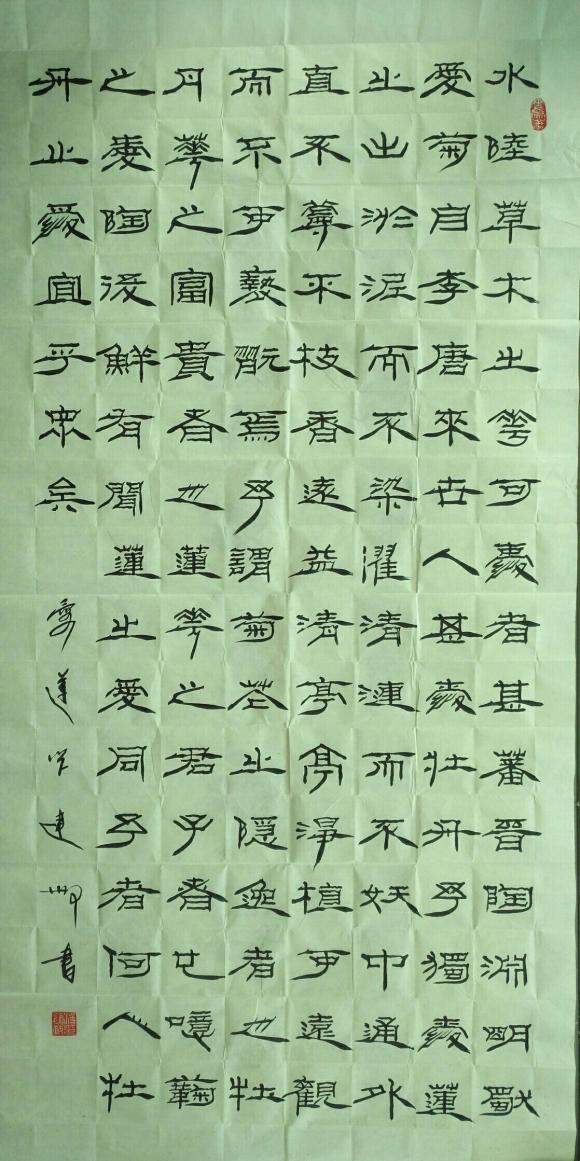 水陸草木之花可愛者甚蕃晉陶淵明獨
愛菊自李唐來世人甚愛牡丹予獨愛蓮
之出淤泥而不染濯清漣而不妖中通外
直不蔓不枝香遠益清亭亭淨植可遠觀
而不可褻翫焉予謂菊花之隱逸者也牡
丹華之富貴者也蓮花之君子者也噫鞠
之愛陶後鮮有聞蓮之愛同予者何人牡
丹之愛宜乎眾矣
愛蓮說建書